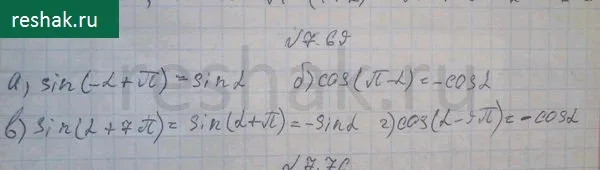 reshak.ru
№7.69
а) sin(-α+π) = sinα б) cos(π-α) = -cosα
в) sin(α+7π) = sin(α+π) = -sinα г) cos(α-9π) = -cosα